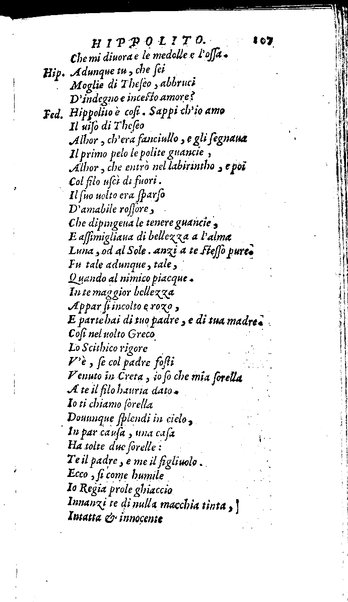 HIPPOLITO. 107
Che mi diuora e le medolle e l'ossa.
Hip. Adunque tu, che sei
Moglie di Theseo, abbruci
D'indegno e incesto amore?
Fed. Hippolito è così. Sappi ch'io amo
Il uiso di Theseo
Alhor, ch'era fanciullo, e gli segnaua
Il primo pelo le polite guancie,
Alhor, che entrò nel labirintho, e poi
Col filo uscì di fuori.
Il suo uolto era sparso
D'amabile rossore,
Che dipingeua le tenere guancie,
E assimigliaua di bellezza a l'alma
Luna, od al Sole. anzi a te stesso pure:
Fu tale adunque, tale,
Quando al nimico piacque.
In te maggior bellezza
Appar sì incolto e rozo,
E parte hai di tuo padre, e di tua madre:
Così nel uolto Greco
Lo Scithico rigore
V'è, se col padre fosti
Venuto in Creta, io so che mia sorella
A te il filo hauria dato.
Io ti chiamo sorella
Douunque splendi in cielo,
In par causa, una casa
Ha tolte due sorelle:
Te il padre, e me il figliuolo.
Ecco, sì come humile
Io Regia prole ghiaccio
Innanzi te di nulla macchia tinta,
Intatta & innocente